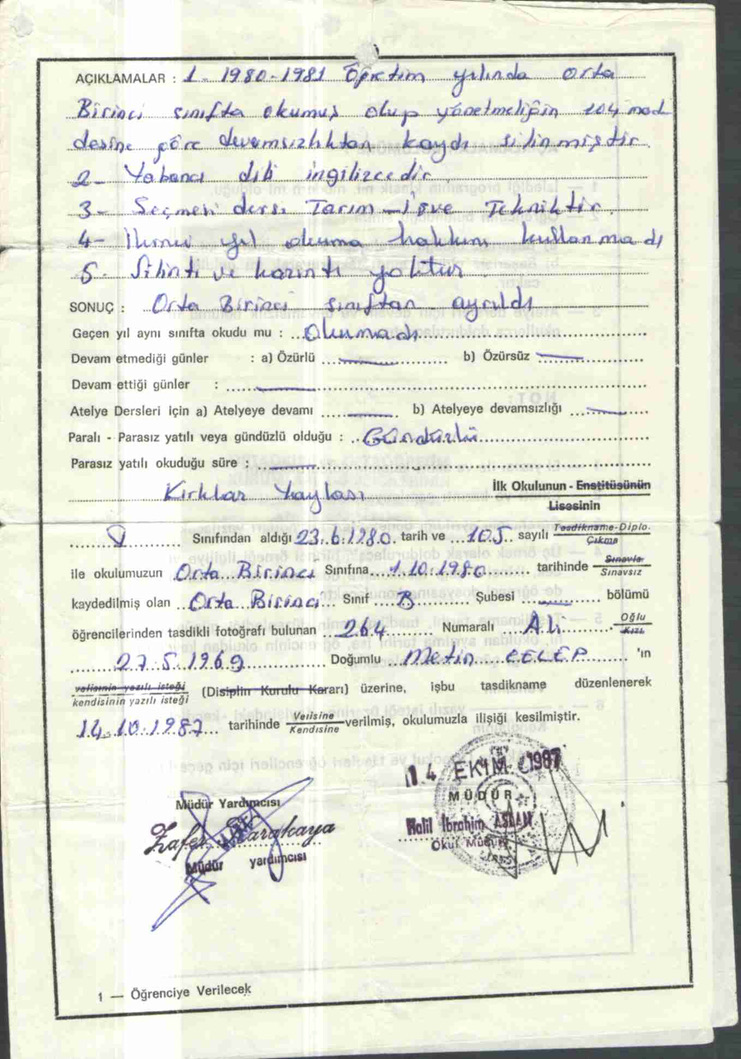 AÇIKLAMALAR : 1- 1980-1981 Öğretim yılında Orta
Birinci sınıfta okumuş olup yönetmeliğin 104 mad
desine göre devamsızlıktan kaydı silinmiştir.
2- Yabancı dili ingilizcedir.
3- Seçmeli dersi Tarım-İş ve Tekniktir.
4- İkinci yıl okuma hakkını kullanmadı
5- Silinti ve kazıntı yoktur
SONUÇ : Orta Birinci sınıftan ayrıldı
Geçen yıl aynı sınıfta okudu mu : Okumadı
Devam etmediği günler : a) Özürlü — b) Özürsüz —
Devam ettiği günler : —
Atelye Dersleri için a) Atelyeye devamı — b) Atelyeye devamsızlığı —
Paralı - Parasız yatılı veya gündüzlü olduğu : Gündüzlü
Parasız yatılı okuduğu süre : —
Kırklar Yaylası İlk Okulunun - Enstitüsünün
Lisesinin
Sınıfından aldığı 23.6.1980. tarih ve 105. sayılı Tasdikname-Diplo.
Çıkma
ile okulumuzun Orta Birinci Sınıfına 1.10.1980 tarihinde Sınavla
Sınavsız
kaydedilmiş olan Orta Birinci Sınıf B Şubesi — bölümü
öğrencilerinden tasdikli fotoğrafı bulunan 264 Numaralı Ali Oğlu
Kızı
27.5.1969 Doğumlu Metin CELEP 'ın
velisinin yazılı isteği
kendisinin yazılı isteği (Disiplin Kurulu Kararı) üzerine, işbu tasdikname düzenlenerek
14.10.1987 tarihinde Velisine
Kendisine verilmiş, okulumuzla ilişiği kesilmiştir.
14 EKİM 1987
Müdür Yardımcısı
MÜDÜR
Zafer Karakaya
Halil İbrahim ASLAN
Müdür yardımcısı
Okul Müdürü
1 — Öğrenciye Verilecek